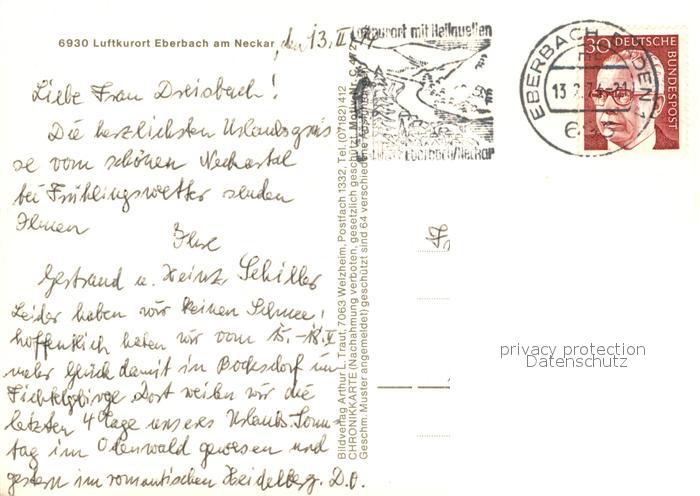 6930 Luftkurort Eberbach am Neckar, den 13. II. 74
Liebe Frau Dreisbach!
Die herzlichsten Urlaubsgrüs
se vom schönen Neckartal
bei Frühlingswetter senden
Ihnen
Ihre
Gertraud u. Heinz Schiller
Leider haben wir keinen Schnee,
hoffentlich haben wir vom 15.-18. II.
mehr Glück damit in Bocksdorf im
Fichtelgbirge. Dort weilen wir die
letzten 4 Tage unseres Urlaubs. Sonn-
tag im Odenwald gewesen und
gestern im romantischen Heidelberg. D.O.
Bildverlag Arthur L. Traut, 7063 Welzheim, Postfach 1332, Tel. (07182) 412
CHRONIKKARTE (Nachahmung verboten, gesetzlich geschützt)
Geschm. Muster angemeldet) geschützt sind 64 verschiedene
Luftkurort mit Heilquellen
Eberbach/Neckar
EBERBACH, BADEN 1
13.2.74-21
30 DEUTSCHE
BUNDESPOST
Fr
privacy protection
Datenschutz